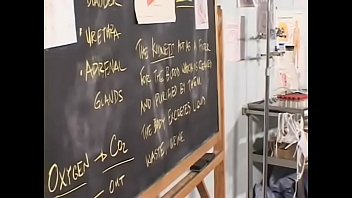 BLADDER
• URETHRA
• ADRENAL
GLANDS
THE KIDNEYS ACT AS A FILTER
FOR THE BLOOD WHICH IS CLEANED
AND PURGED BY THEM.
THE BODY EXCRETES LIQUID
WASTE URINE
OXYGEN → CO2
OUT